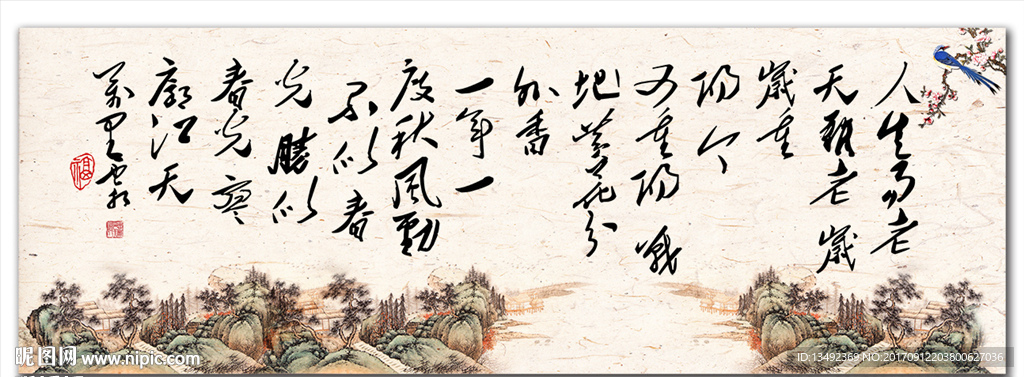 人生易老
天難老歲
歲重
陽今
又重陽戰
地黃花分
外香
一年一
度秋風勁
不似春
光勝似
春光寥
廓江天
萬里霜
福
昵图网 www.nipic.com
ID:13492369 NO:20170912203800627036